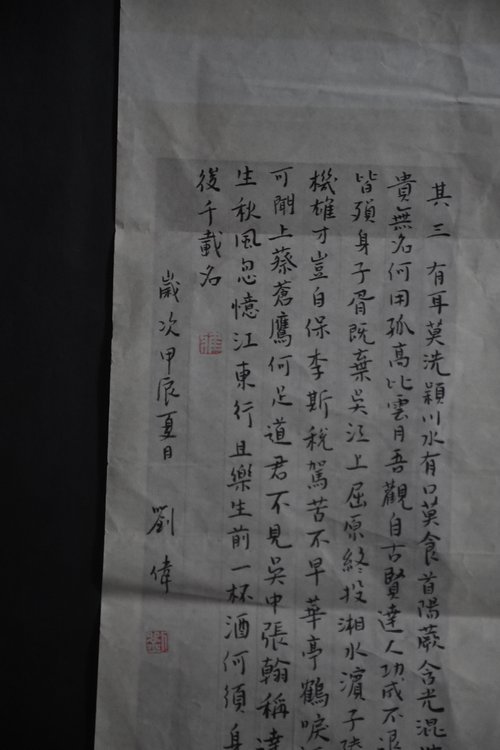 其三有耳莫洗潁川水有口莫食首陽蕨含光混
貴無名何用孤高比雲月吾觀自古賢達人功成不退
皆殞身子胥既棄吳江上屈原終投湘水濱子陸
機雄才豈自保李斯稅駕苦不早華亭鶴唳
可聞上蔡蒼鷹何足道君不見吳中張翰稱達
生秋風忽憶江東行且樂生前一杯酒何須身
後千載名
歲次甲辰夏日 劉偉